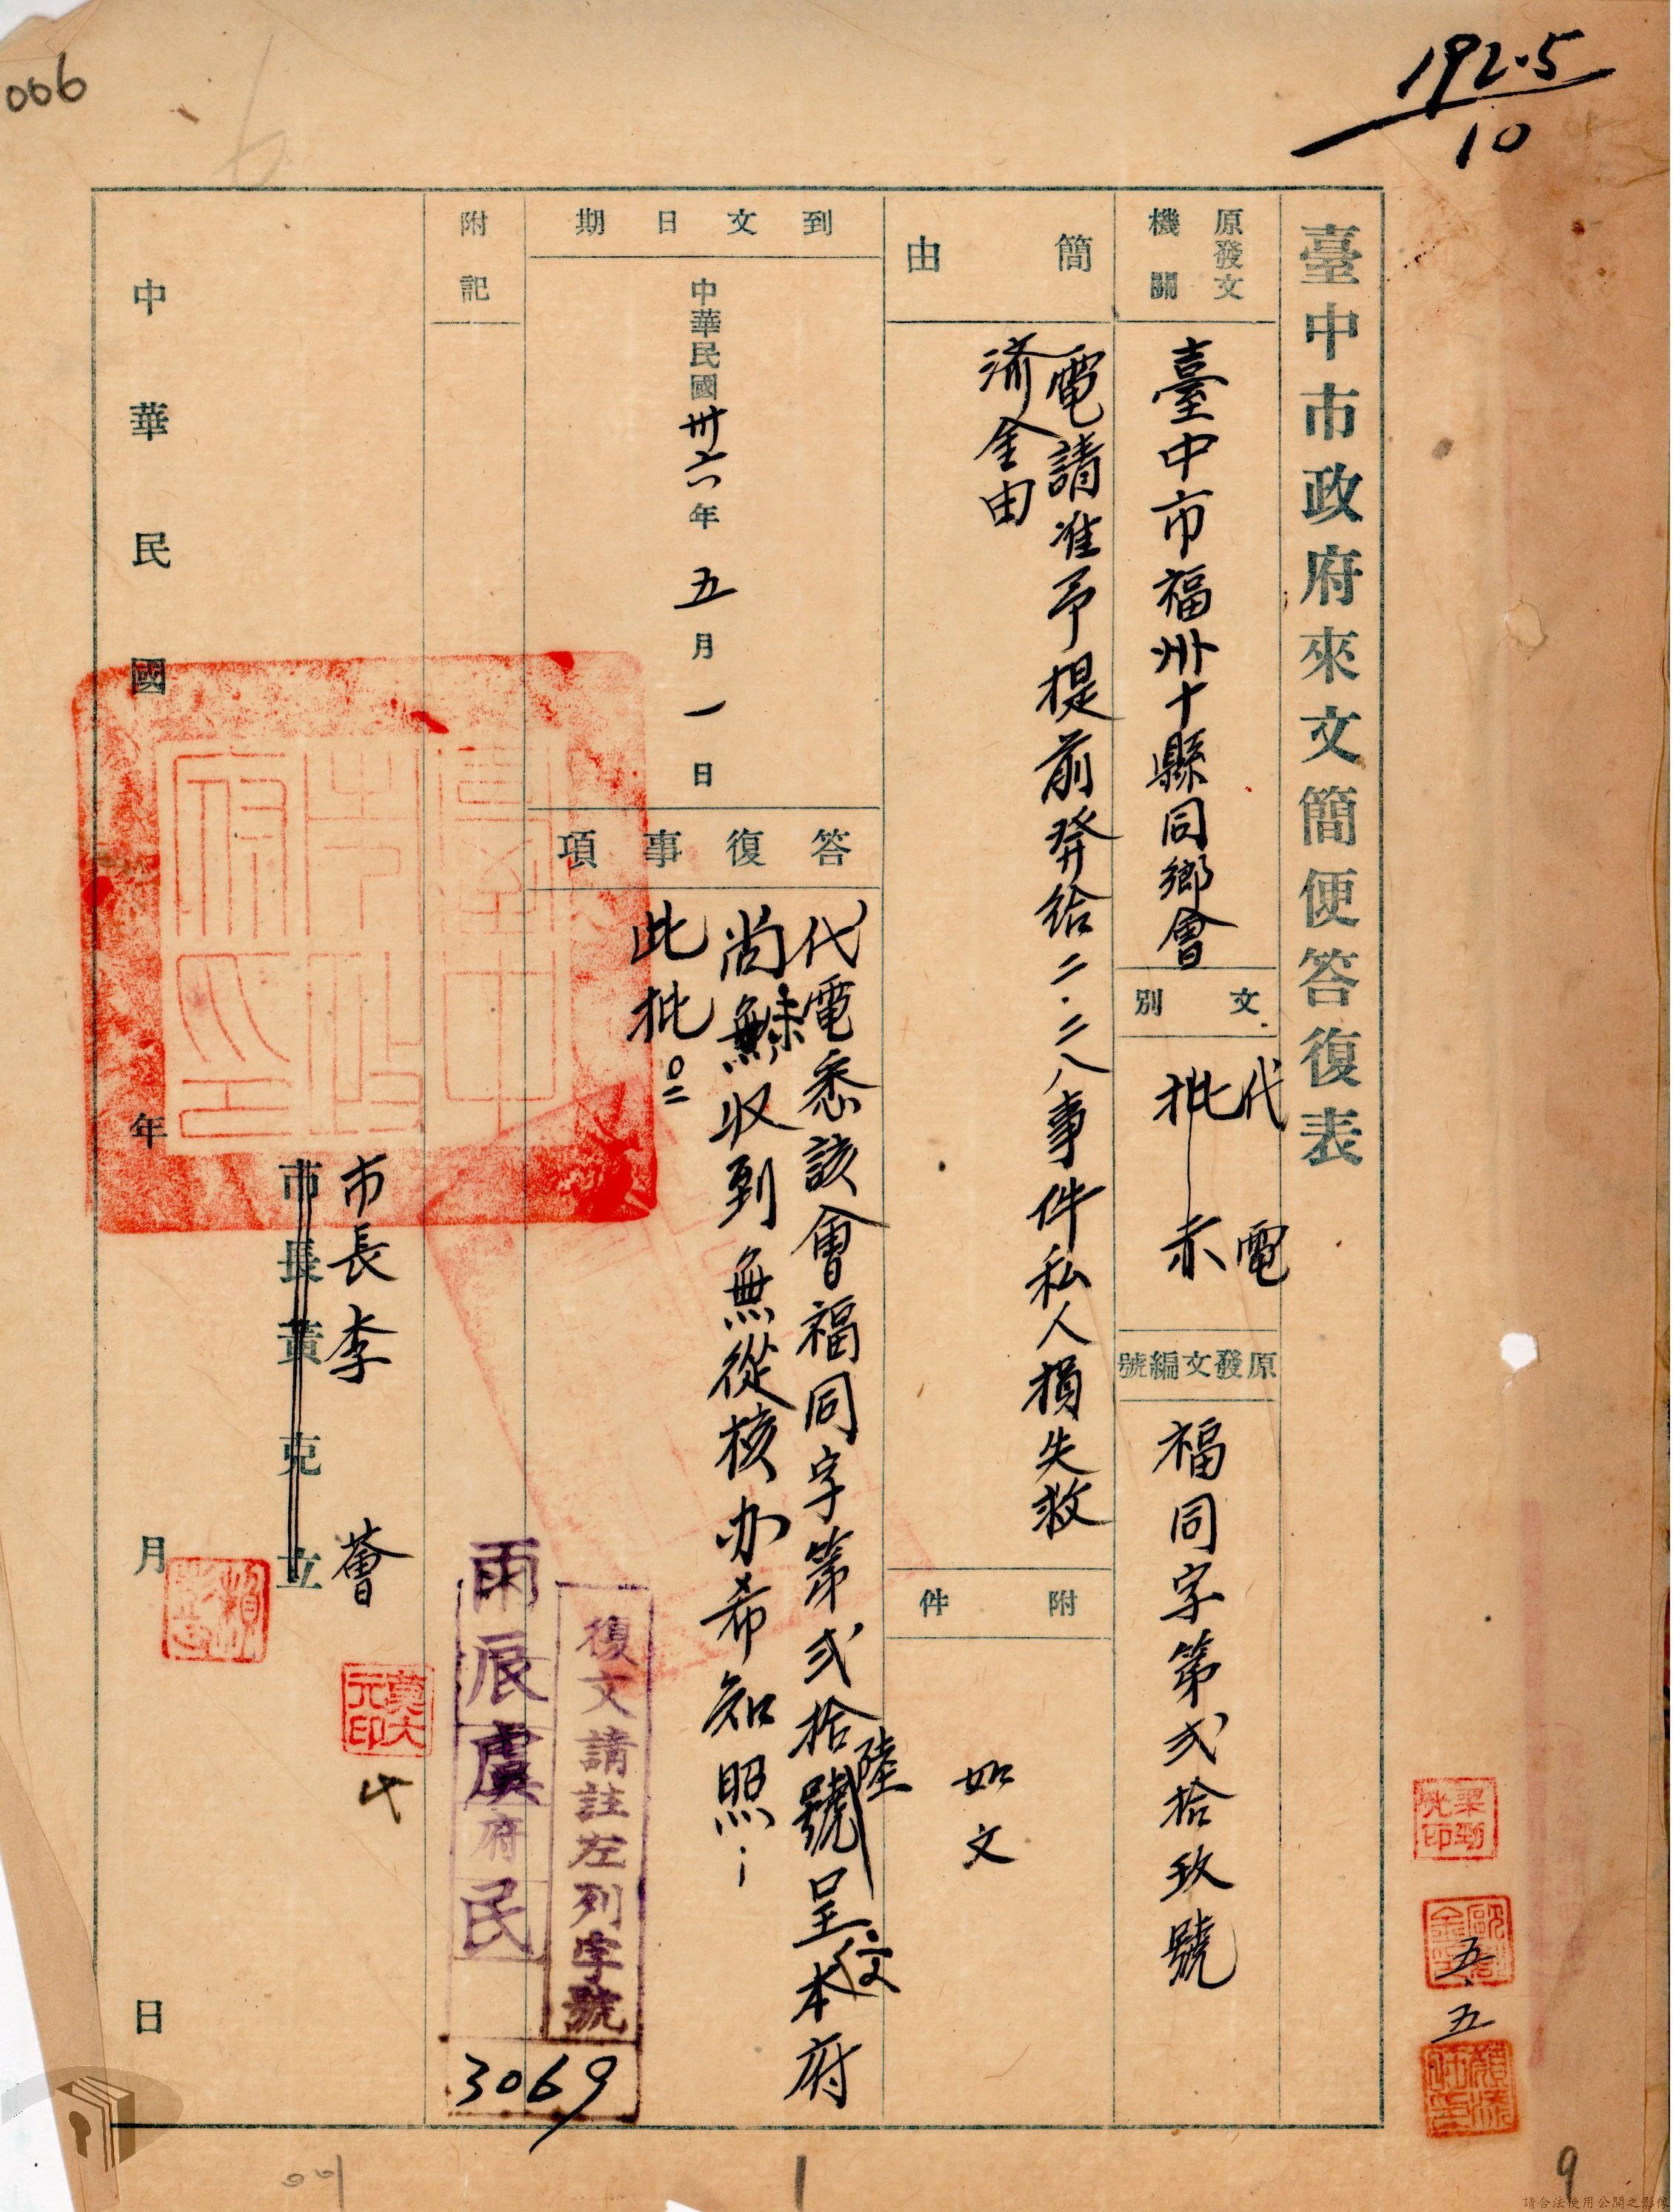 006
192.5
10
臺中市政府來文簡便答復表
原發文機關
臺中市福州十縣同鄉會
文別
代電
批示
原發文編號
福同字第弍拾玖號
簡由
電請准予提前發給二.二八事件私人損失救
濟金由
附件
如文
到文日期
中華民國卅六年五月一日
答復事項
代電悉該會福同字第弍拾陸號呈文本府
尚未收到無從核办希知照
此批
附記
復文請註左列字號
雨辰虞府民
3069
市長李薈
市長黃克立
中華民國年月日
黃大元印
五
五
1
9
請合法使用公開之影像